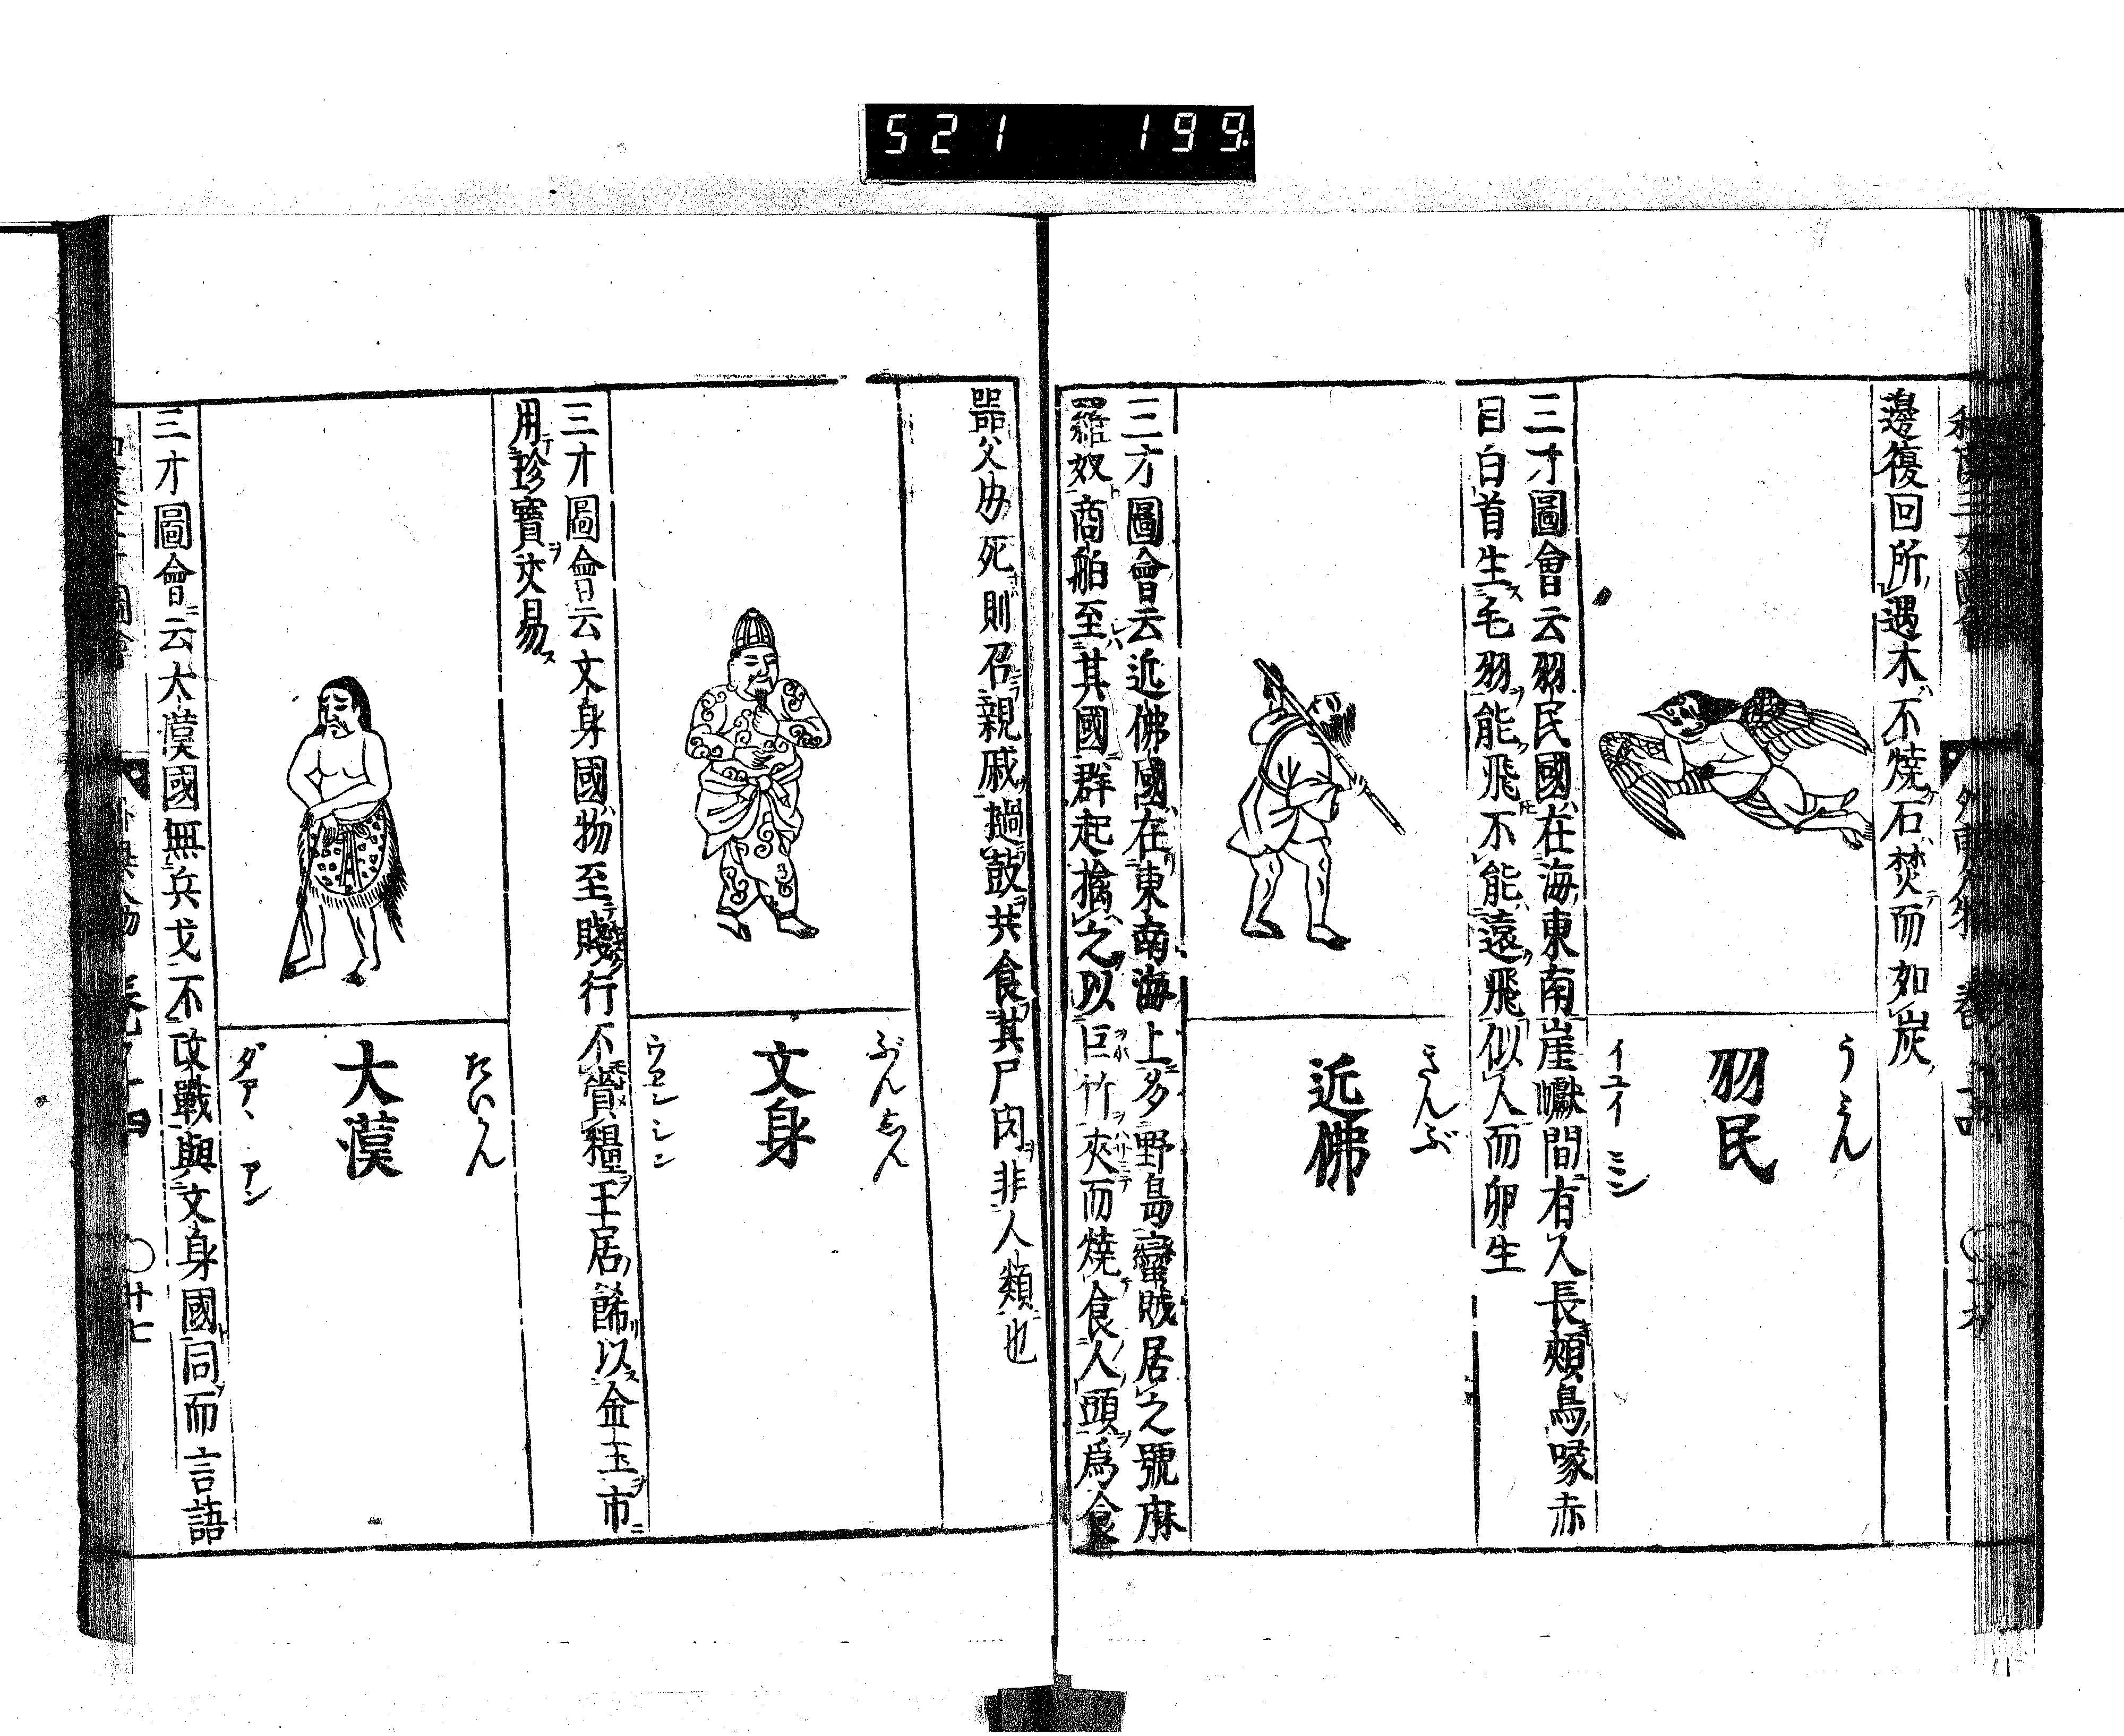 521 199.
邊復回所遇木不燒石焚而如炭
うみん
羽民
イユイ ミン
三才圖會云羽民國在海東南崖巘間有人長頰鳥喙赤
目白首生毛羽能飛不能遠飛似人而卵生
きんぶ
近佛
三才圖會云近佛國在東南海上多野島蠻賊居之號麻
羅奴商舶至其國群起擒之以巨竹夾而燒食人頭爲食
噐父母死則召親戚撾鼓共食其尸肉非人類也
ぶんしん
文身
ウエン シン
三才圖會云文身國物至賤行不賷糧王居餙以金玉市
用珍寶交易
たいかん
大漢
ダアヽ アン
三才圖會云大漢國無兵戈不攻戰與文身國同而言語
卷之十四 〇廿七